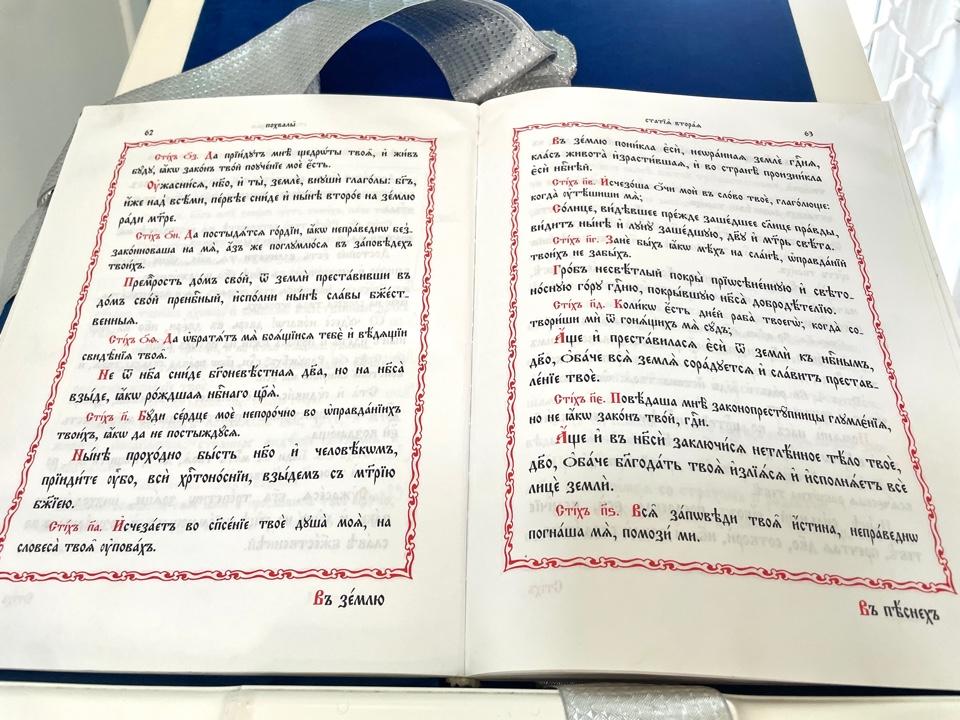 62
похвалы̀
Сті́хъ о҃з. Да прїи́дутъ мнѣ̀ щедрѡ́ты твоѧ̑, и҆ жи́въ
бу́ду, ꙗ҆́кѡ зако́нъ тво́й поуче́нїе моѐ є҆́сть.
Оу҆жасни́сѧ, нб҃о, и҆ ты̀, землѐ, внуши̑ глаго́лы: бг҃ъ,
и҆́же над̾ всѣ́ми, пе́рвѣе сни́де и҆ ны́нѣ второ́е на зе́млю
ра́ди мт҃ре.
Сті́хъ о҃и. Да постыдѧ́тсѧ го́рдїи, ꙗ҆́кѡ непра́веднѡ без̾-
зако́нноваша на мѧ̀, а҆́з же поглумлю́сѧ въ за́повѣдехъ
твои́хъ.
Премⷣрость до́мъ сво́й, ѿ землѝ преста́вивши въ
до́мъ сво́й пренбⷭ҇ный, и҆спо́лни ны́нѣ сла́вы бж҃е́ст-
венныѧ.
Сті́хъ о҃ѳ. Да ѡ҆братѧ́тъ мѧ̀ боѧ́щїисѧ тебѐ и҆ вѣ́дѧщїи
свидѣ̑нїѧ твоѧ̑.
Не ѿ нб҃а сни́де бг҃оневѣ́стнаѧ дв҃а, но на нб҃са̀
взы́де, ꙗ҆́кѡ ро́ждшаѧ нбⷭ҇наго цр҃ѧ̀.
Сті́хъ п҃. Бу́ди се́рдце моѐ непоро́чно во ѡ҆правда́нїихъ
твои́хъ, ꙗ҆́кѡ да не постыжду́сѧ.
Ны́нѣ прохо́дно бы́сть нб҃о и҆ человѣ́кѡмъ,
прїиди́те оу҆̀бо, всѝ хрⷭ҇тоно́снїи, взы́демъ съ мт҃рїю
бж҃їею.
Сті́хъ п҃а. И҆счеза́етъ во сп҃се́нїе твоѐ душа̀ моѧ̀, на
словеса̀ твоѧ̑ оу҆пова́хъ.
Въ зе́млю
статїѧ̀ втора́ѧ
63
Въ зе́млю пони́кла є҆сѝ, неѡра́ннаѧ землѐ гдⷭ҇нѧ,
кла́съ живота̀ и҆зрасти́вшаѧ, и҆ во странѣ̀ пронзи́кла
є҆сѝ нбⷭ҇нѣй.
Сті́хъ п҃в. И҆счезо́ша ѻ҆́чи моѝ въ сло́во твоѐ, глаго́люще:
когда̀ оу҆тѣ́шиши мѧ̀;
Со́лнце, ви́дѣвшее пре́жде заше́дшее со́лнце пра́вды,
ви́дитъ ны́нѣ и҆ луну̀ заше́дшую, дв҃у и҆ мт҃рь свѣ́та.
Сті́хъ п҃г. Занѐ бы́хъ ꙗ҆́кѡ мѣ́хъ на сла́нѣ, ѡ҆правда́нїй
твои́хъ не забы́хъ.
Гро́бъ несвѣ́тлый покры̀ прїѡсѣне́нную и҆ свѣто-
но́сную го́ру гдⷭ҇ню, покры́вшую нб҃са̀ добродѣ́телїю.
Сті́хъ п҃д. Коли́кѡ є҆́сть дне́й раба̀ твоегѡ̀; когда̀ со-
твори́ши мѝ ѿ гонѧ́щихъ мѧ̀ су́дъ;
А҆́ще и҆ преста́виласѧ є҆сѝ ѿ землѝ къ нбⷭ҇нымъ,
дв҃о, ѻ҆ба́че всѧ̀ землѧ̀ сора́дуетсѧ и҆ сла́витъ престав-
ле́нїе твоѐ.
Сті́хъ п҃є. Повѣ́даша мнѣ̀ законопресту̑пницы глумлє́нїѧ,
но не ꙗ҆́кѡ зако́нъ тво́й, гдⷭ҇и.
А҆́ще и҆ въ нб҃си́ заключи́сѧ нетлѣ́нное тѣ́ло твоѐ,
дв҃о, ѻ҆ба́че блг҃ода́ть твоѧ̀ и҆злїѧ́сѧ и҆ и҆сполнѧ́етъ всѐ
лицѐ землѝ.
Сті́хъ п҃ѕ. Всѧ̑ за́пѡвѣди твоѧ̑ и҆́стина, непра́веднѡ
погна́ша мѧ̀, помози́ ми.
Въ пѣ́снехъ